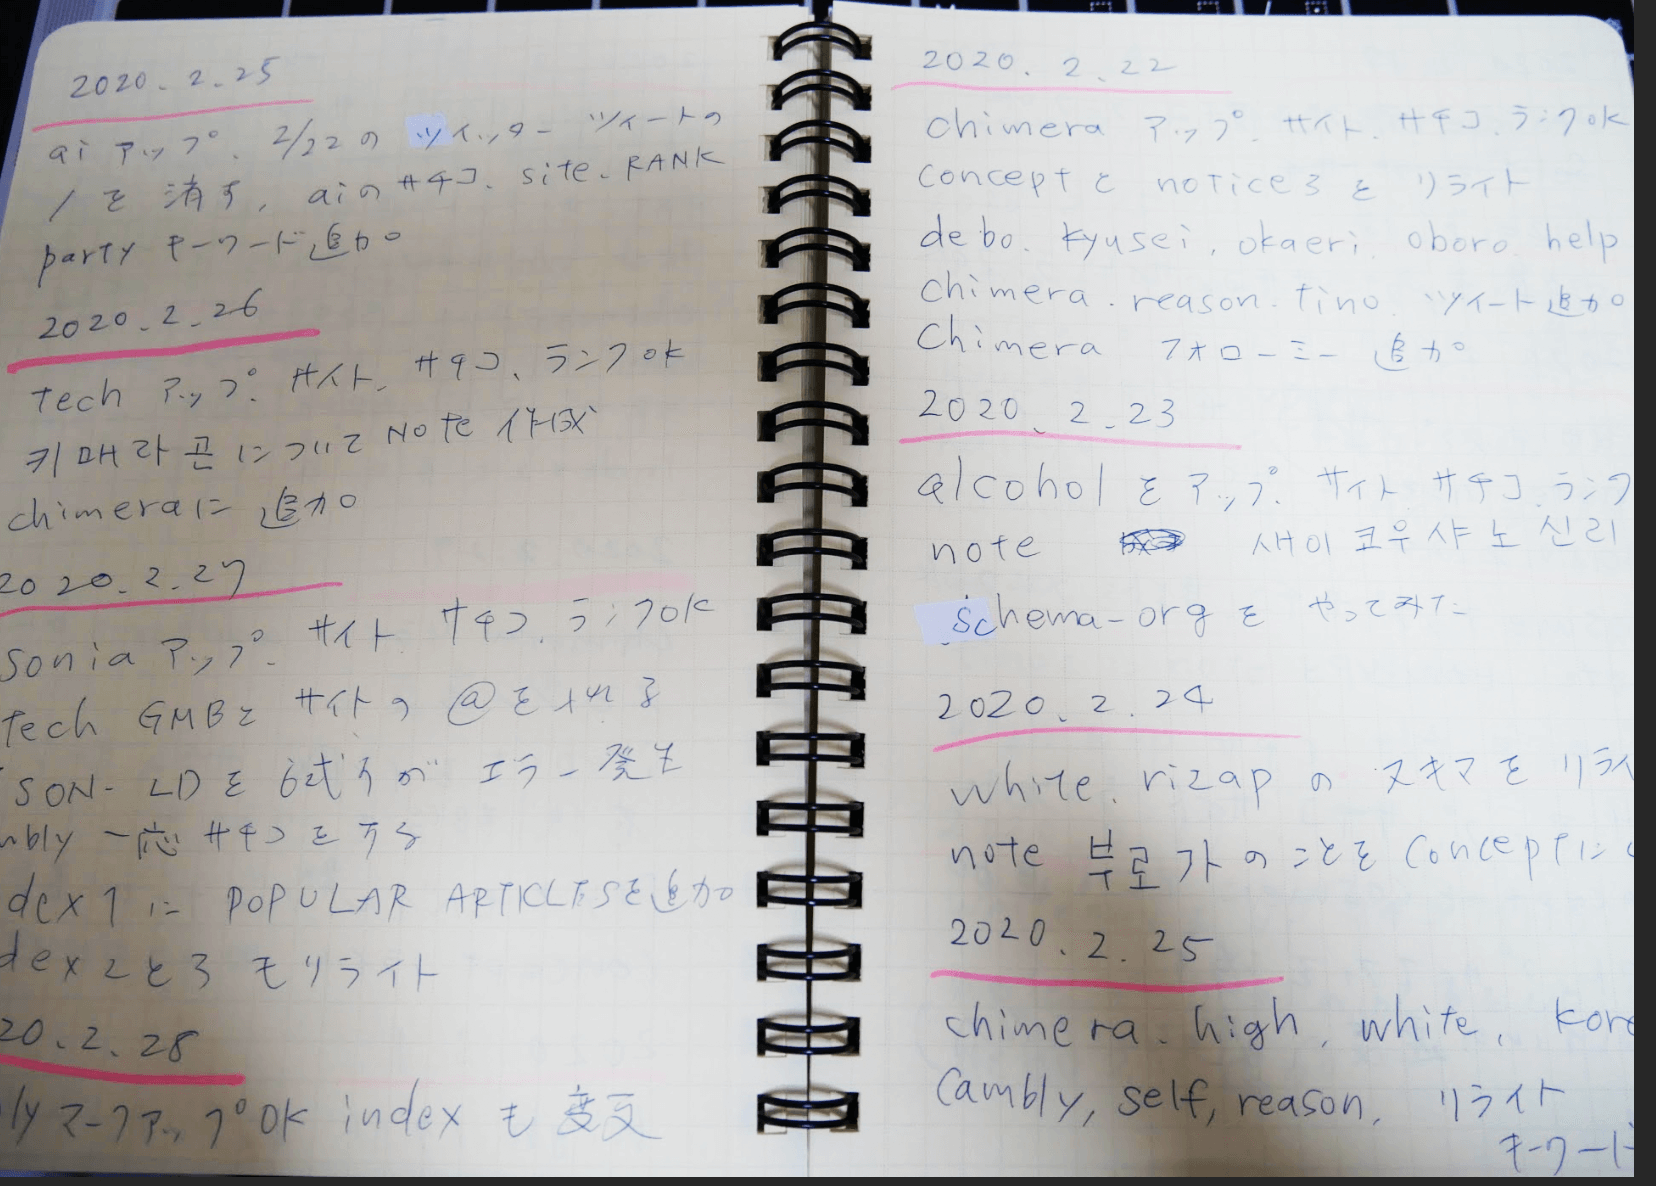 2020.2.25
ai アップ、2/22の ツイッター ツイートの
/を消す、aiのサチコ、site、RANK
party キーワード追加
2020.2.26
tech アップ、サイト、サチコ、ランクOK
키매라곤について Note 作成
chimeraに 追加
2020.2.27
sonia アップ、サイト サチコ、ランクOK
tech GMBと サイトの @を入れる
SON-LDを試すが エラー発生
mbly 一応サチコをする
dex1に POPULAR ARTICLESを追加
dex2と3もリライト
20.2.28
ly マークアップOK index も変更
2020.2.22
chimera アップ、サイト、サチコ、ランクOK
conceptと notice3を リライト
debo. kyusei, okaeri oboro help
chimera. reason. tino ツイート追加
chimera フォローミー 追加
2020.2.23
alcoholをアップ、サイト サチコ、ランク
note 새이코우샤노신리
schema-orgを やってみた
2020.2.24
white. rizapの スキマを リライ
note 부로가のことを conceptに
2020.2.25
chimera、high, white, kore
Cambly, self, reason, リライト
キーワード